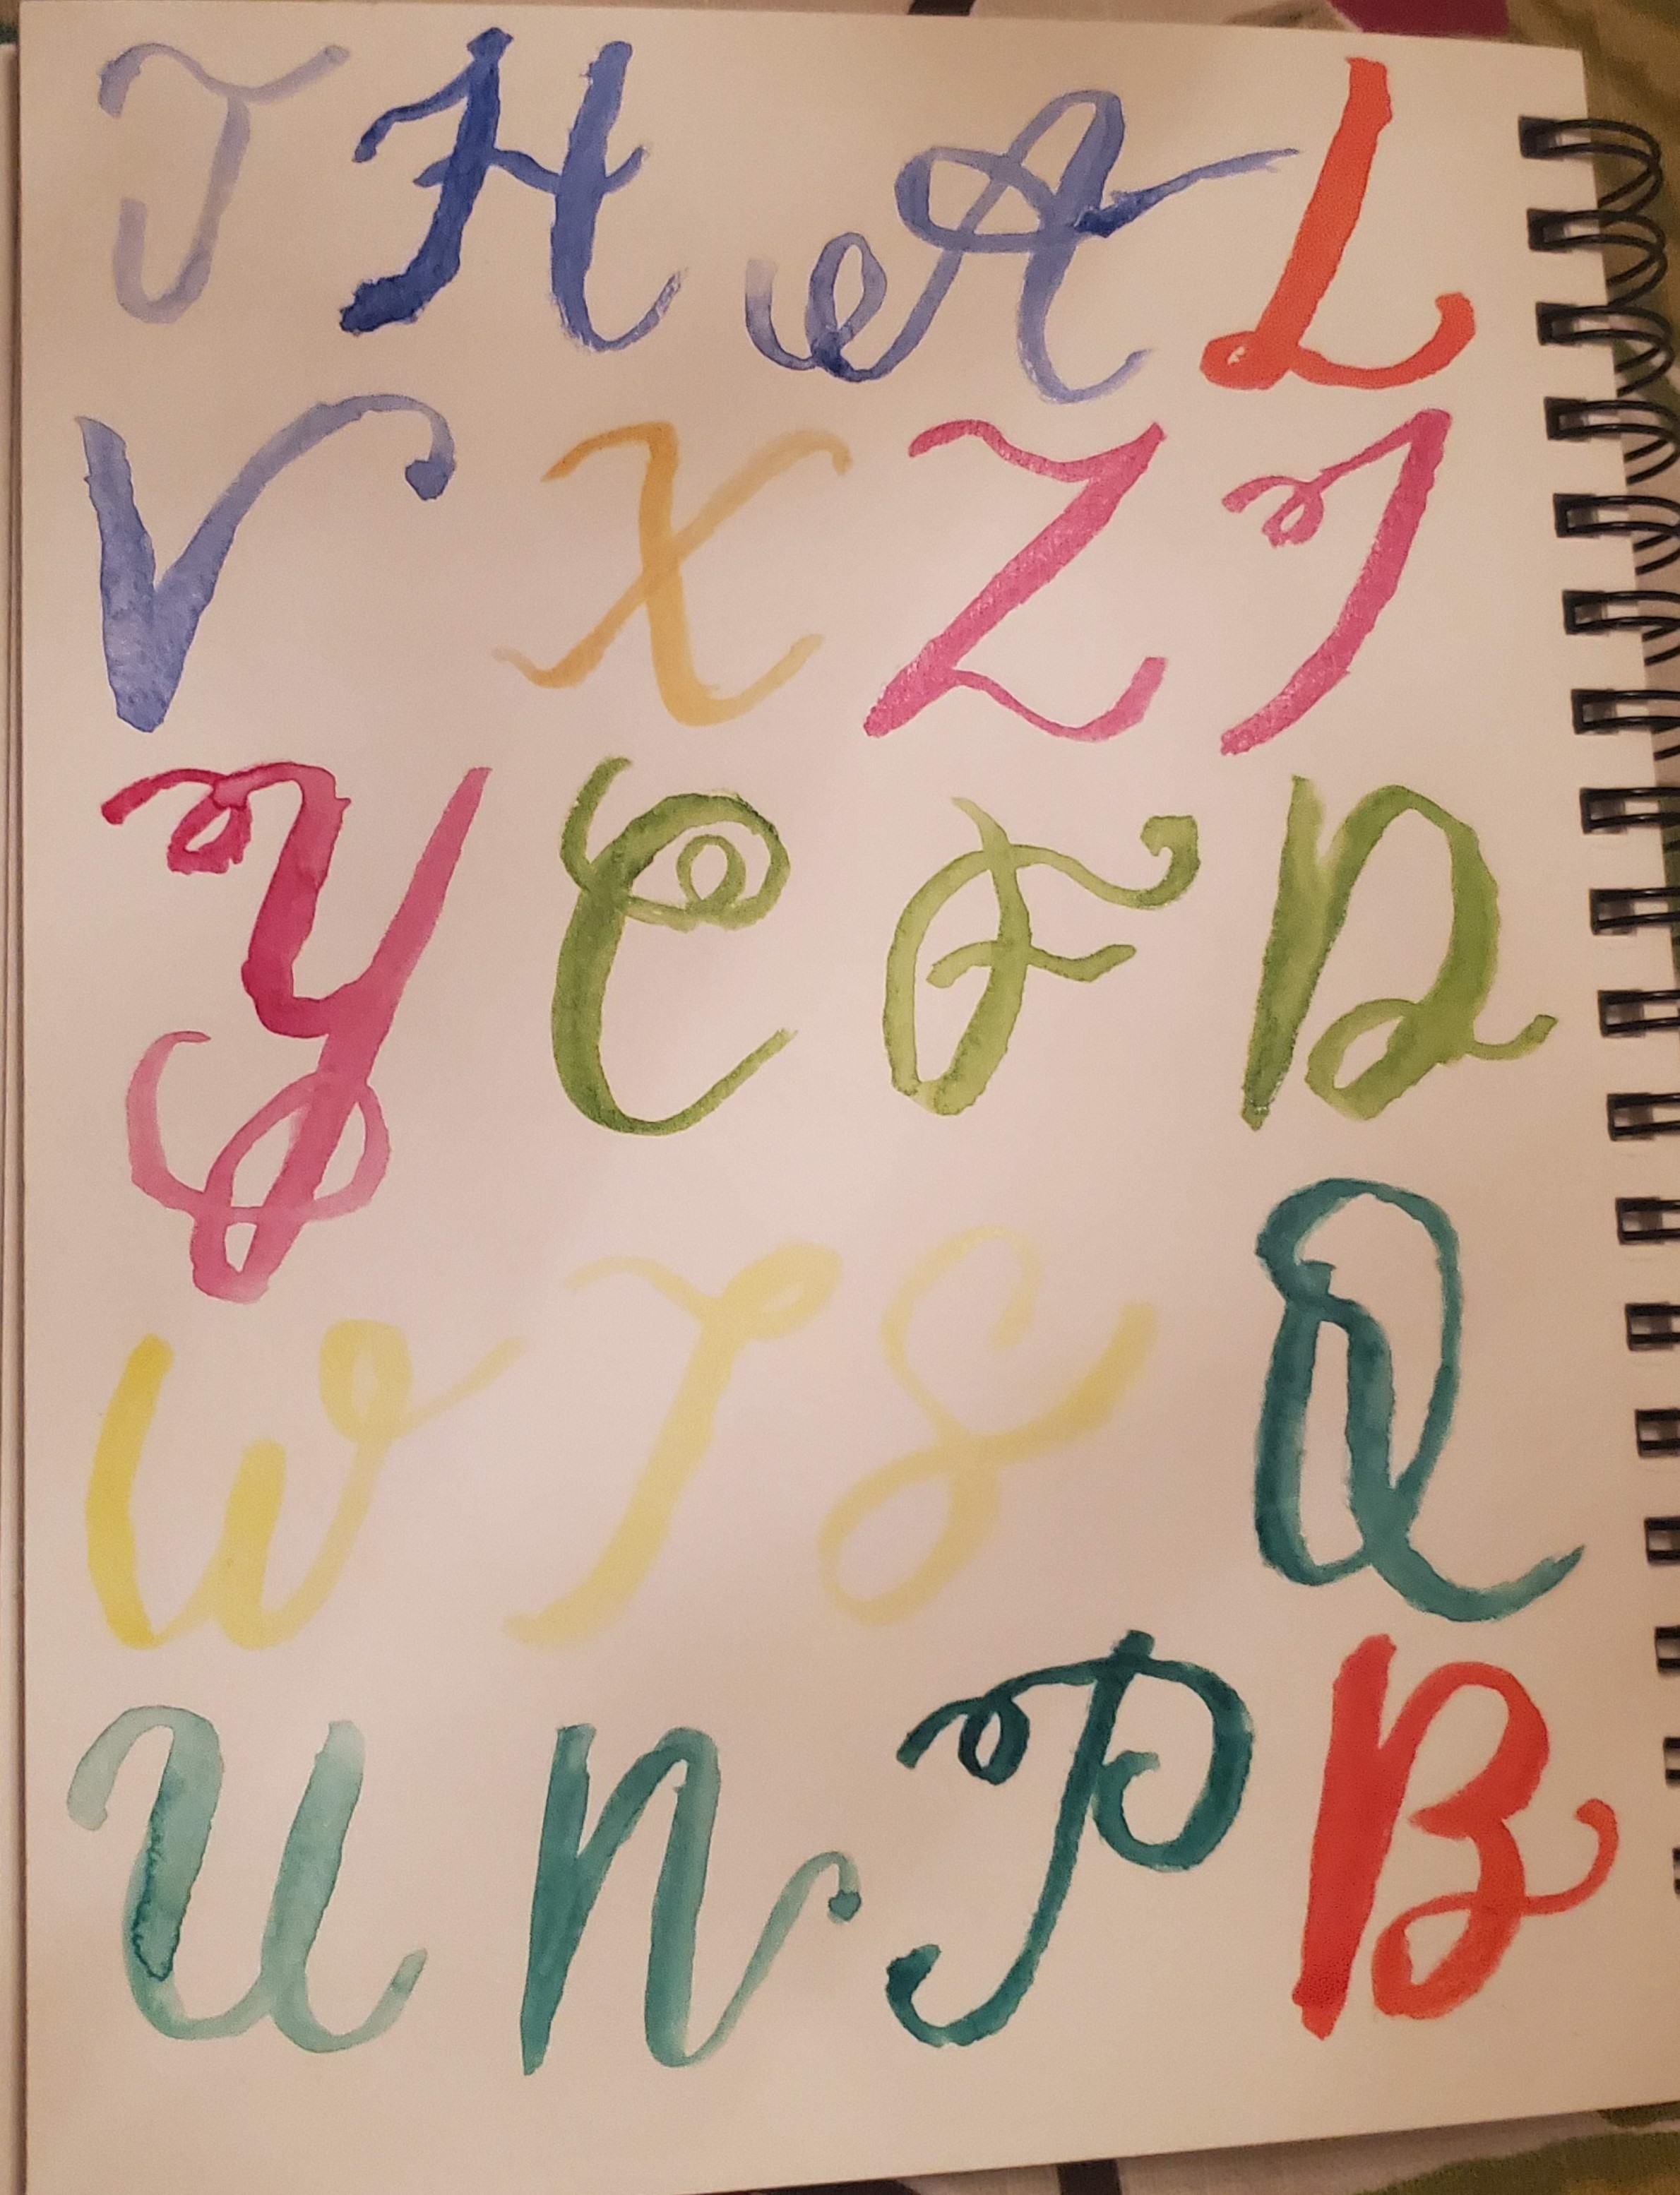 J H A L
V X Z I
Y C F D
W T S Q
U N P B